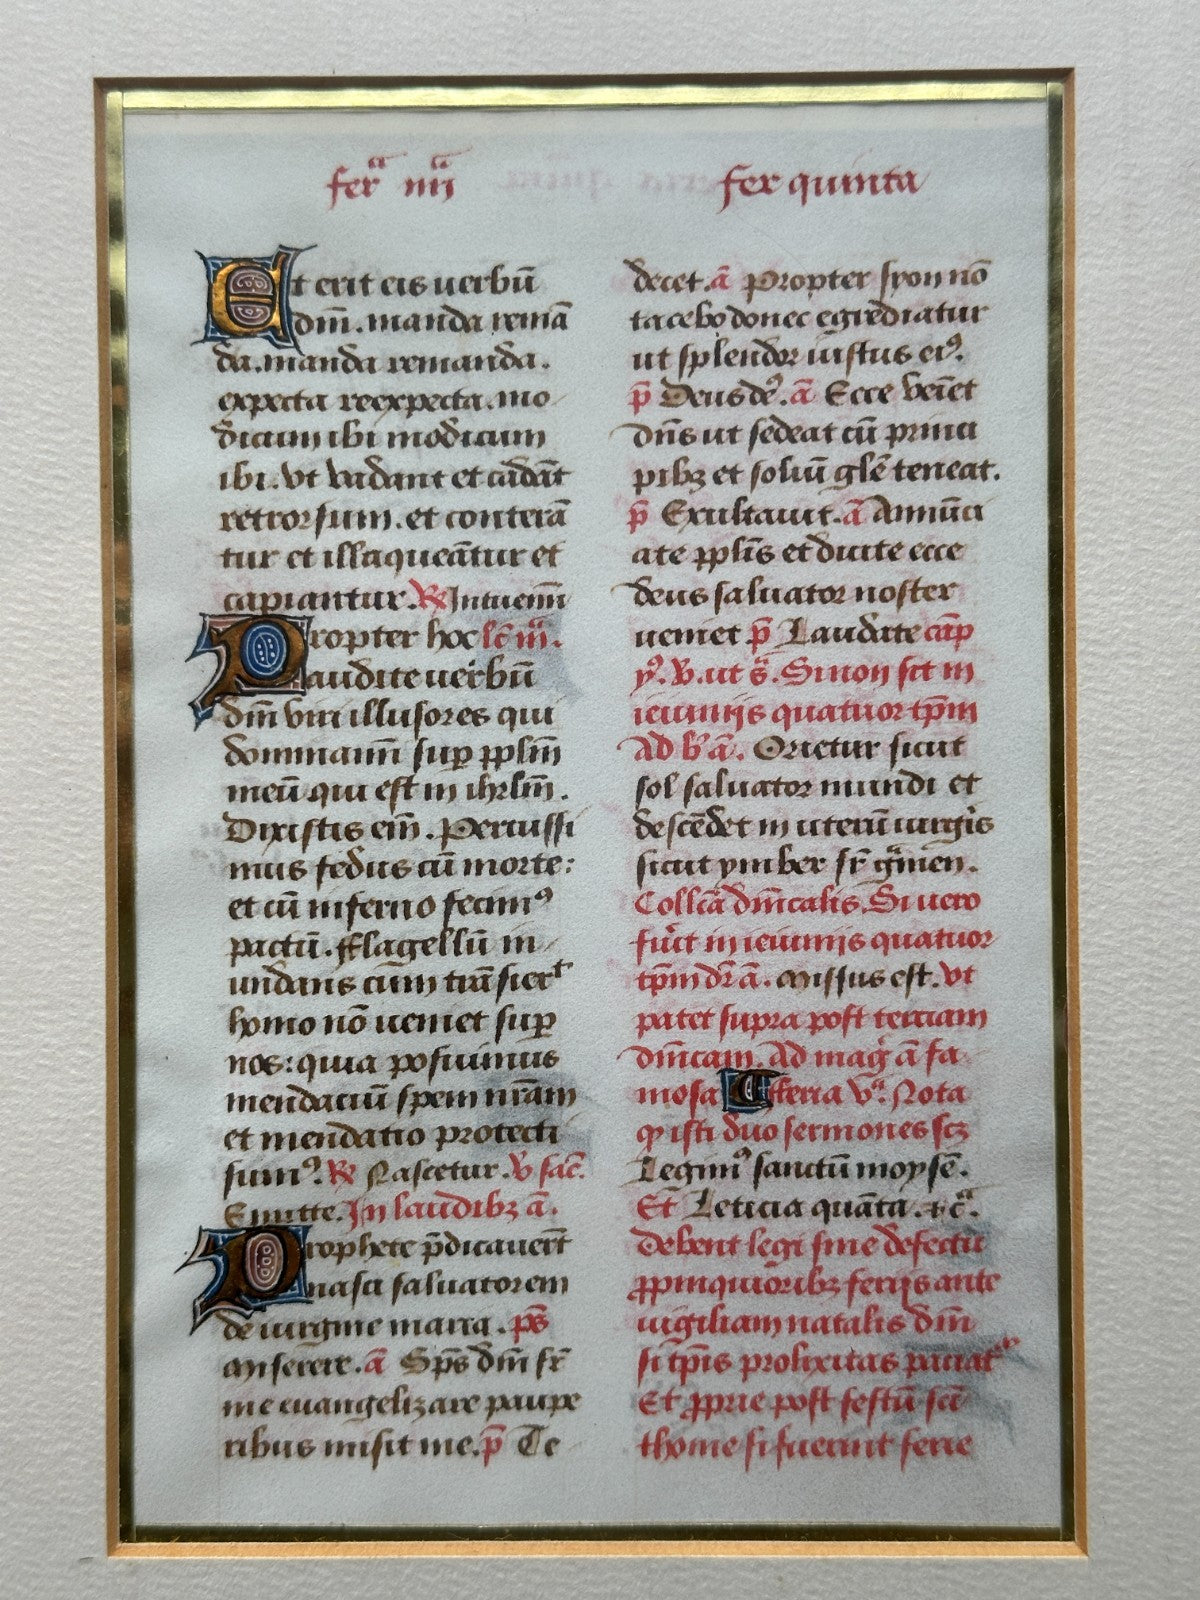 ferᷓ iiijᷓ
Et erit eis uerbū
dnı̄. manda remā
da. manda remanda.
expecta reexpecta. mo
dicum ibi modicum
ibi. vt vadant et cādāt
retrorsum. et conterā
tur et illaqueātur et
capiantur. ℟ Intuemı̄
Propter hoc lc̄ iijᷓ.
audite uerbū
dnı̄ viri illusores qui
dominamı̄ suꝑ pplm̄
meū qui est in ihrlm̄.
Dixistis em̄. Percussi
mus fedus cū morte:
et cū inferno fecimꝰ
pactū. fflagellū in
undans cūm trāsierᵗ
homo nō ueniet suꝑ
nos: quia posuimus
mendaciū spem nr̄am
et mendatio protecti
sumꝰ. ℟ Nascetur. ℣ sac̄.
Emitte. In laudibꝫ a᷎.
Prophete p̄dicauer̄t
nasci saluatorem
de uirgine maria. ps̄
Miserere. ā Sp̄s dnı̄ sr̄
me euangelizare paupe
ribus misit me. p̄ Te
fer quinta
decet. ā Propter syon nō
tacebo donec egrediatur
ut splendor iustus eiꝰ.
p̄ Deus dẽ. ā Ecce veı̄et
dn̄s ut sedeat cū princi
pibꝫ et soliū glē teneat.
p̄ Exultauit. ā Annūci
ate ppl̄is et dicite ecce
deus saluator noster
ueniet p̄ Laudate cāp
yꝰ. ℣. ut sᷓ. Si non sit in
ieiunijs quatuor tp̄m
Ad b̄ ā. Orietur sicut
sol saluator mundi et
descēdet in uterū uirgı̄s
sicut ymber sr̄ gᷓmen.
Collc̄a dnı̄calis. Si uero
fūit in ieiunijs quatuor
tp̄m dr̄ ā. Missus est. vt
patet supra post terciam
dnı̄cam. Ad maḡ ā fa
mosa C̄fferra vᷓ. Nota
ꝙ isti duo sermones scꝫ
Legimꝰ sanctū moysē.
Et Leticia quāta. ⁊cᷓ.
debent legi sine defectu
ꝓpinquioribꝫ ferijs ante
uigiliam natalis dnı̄
si tp̄is prolixitas paciaᵗ
Et ꝓprie post festū scı̄
thome si fuerint ferie